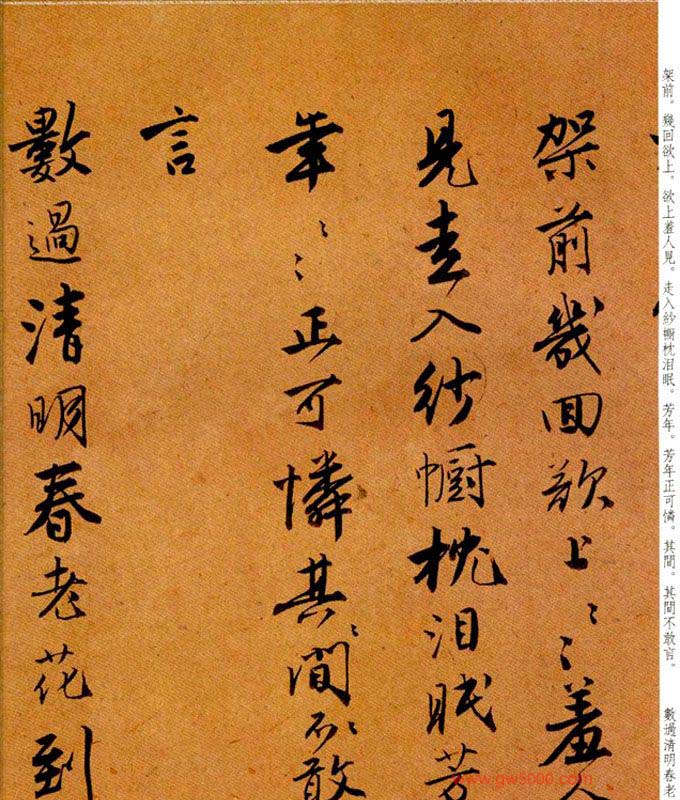 架前。幾回欲上。欲上羞人見。走入紗幮枕泪眠。芳年。芳年正可憐。其間。其間不敢言。 數過清明春老
架前幾回欲上〻〻羞人
見走入紗幮枕泪眠芳
年〻〻正可憐其〻間〻不敢
言
數過清明春老花到
www.gw5000.com